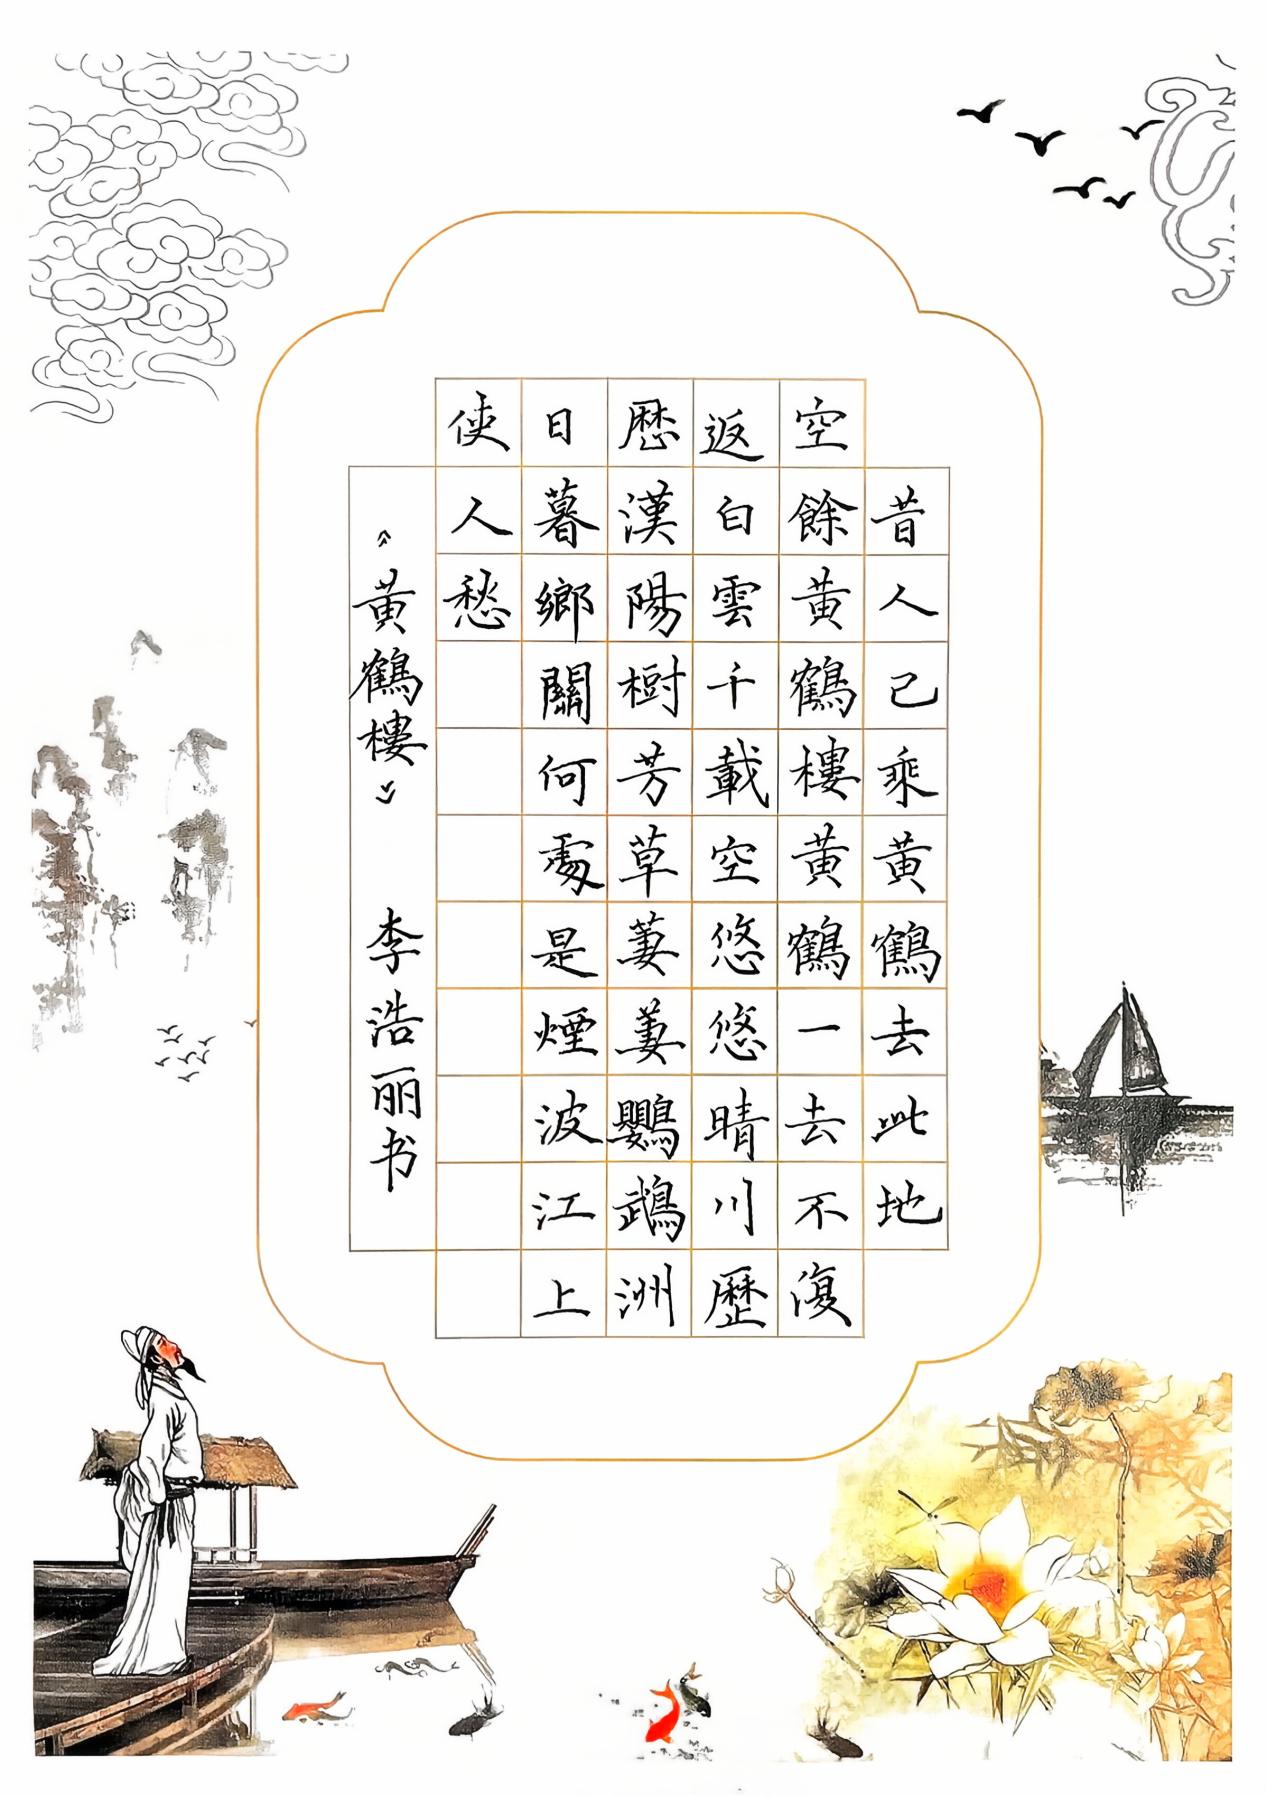 昔人已乘黃鶴去此地
空餘黃鶴樓黃鶴一去不復
返白雲千載空悠悠晴川歷
歷漢陽樹芳草萋萋鸚鵡洲
日暮鄉關何處是煙波江上
使人愁
《黃鶴樓》 李浩丽书